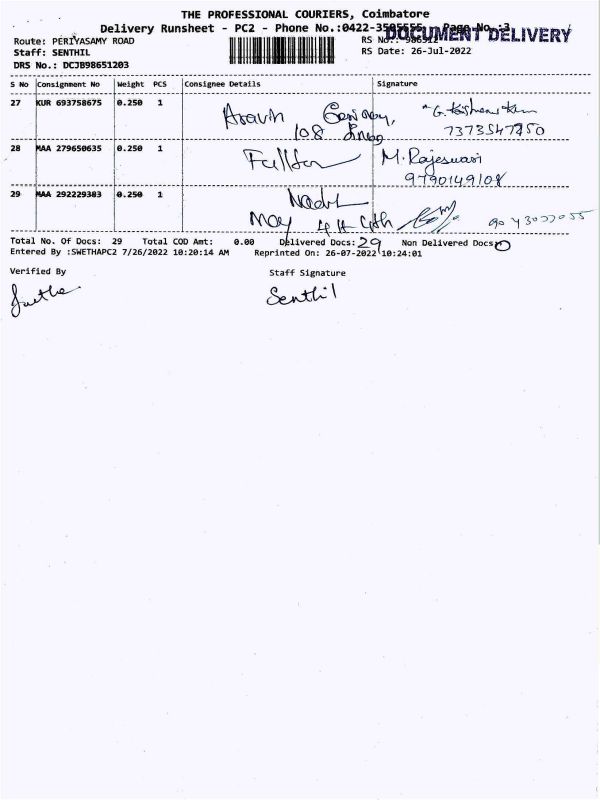 THE PROFESSIONAL COURIERS, Coimbatore
Delivery Runsheet - PC2 - Phone No.:0422-3505555 Page No.:3
DOCUMENT DELIVERY
Route: PERIYASAMY ROAD
RS No.:
Staff: SENTHIL
RS Date: 26-Jul-2022
DRS No.: DCJB98651203
S No Consignment No Weight PCS Consignee Details Signature
27 KUR 693758675 0.250 1
108
7373547250
28 MAA 279650635 0.250 1 M. Rajeswari
9790149108
29 MAA 292229383 0.250 1
Total No. Of Docs: 29 Total COD Amt: 0.00 Delivered Docs: 29 Non Delivered Docs: 0
Entered By :SWETHAPC2 7/26/2022 10:20:14 AM Reprinted On: 26-07-2022 10:24:01
Verified By Staff Signature
Senthil